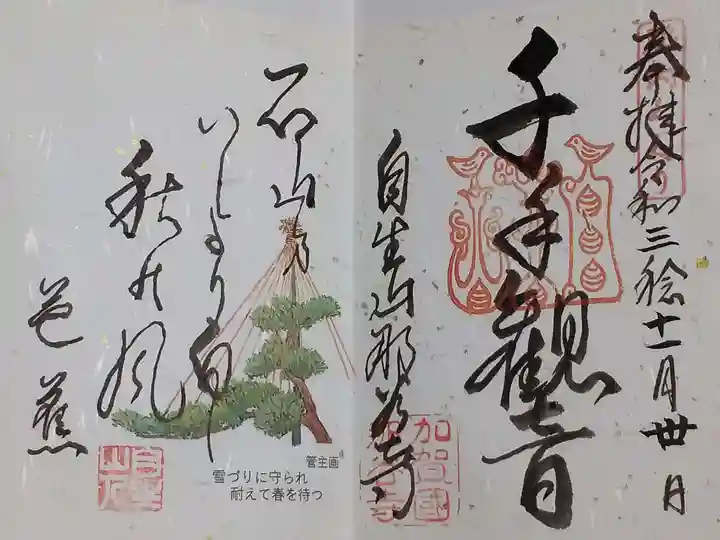 奉拝 令和三稔十一月卅日
千手観音
自生山那谷寺
加賀國
石山乃
いしより白し
秋の風
芭蕉
管主画
雪づりに守られ
耐えて春を待つ